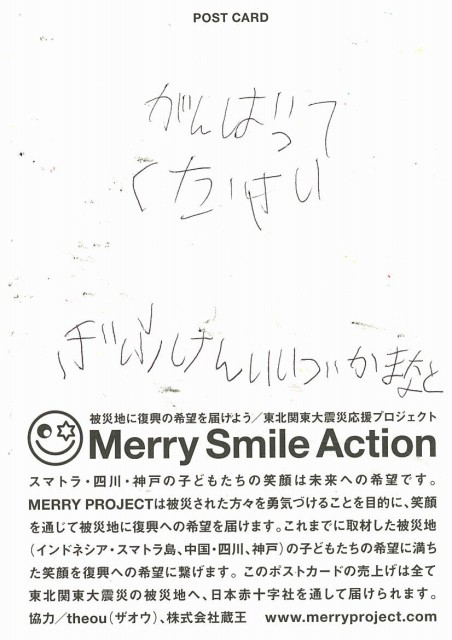 POST CARD
がんばって
くたはい
ぎふけんいいづかまなと
被災地に復興の希望を届けよう/東北関東大震災応援プロジェクト
Merry Smile Action
スマトラ・四川・神戸の子どもたちの笑顔は未来への希望です。
MERRY PROJECTは被災された方々を勇気づけることを目的に、笑顔
を通じて被災地に復興への希望を届けます。これまでに取材した被災地
(インドネシア・スマトラ島、中国・四川、神戸)の子どもたちの希望に満ち
た笑顔を復興への希望に繋げます。このポストカードの売上げは全て
東北関東大震災の被災地へ、日本赤十字社を通して届けられます。
協力/theou(ザオウ)、株式会社蔵王 www.merryproject.com